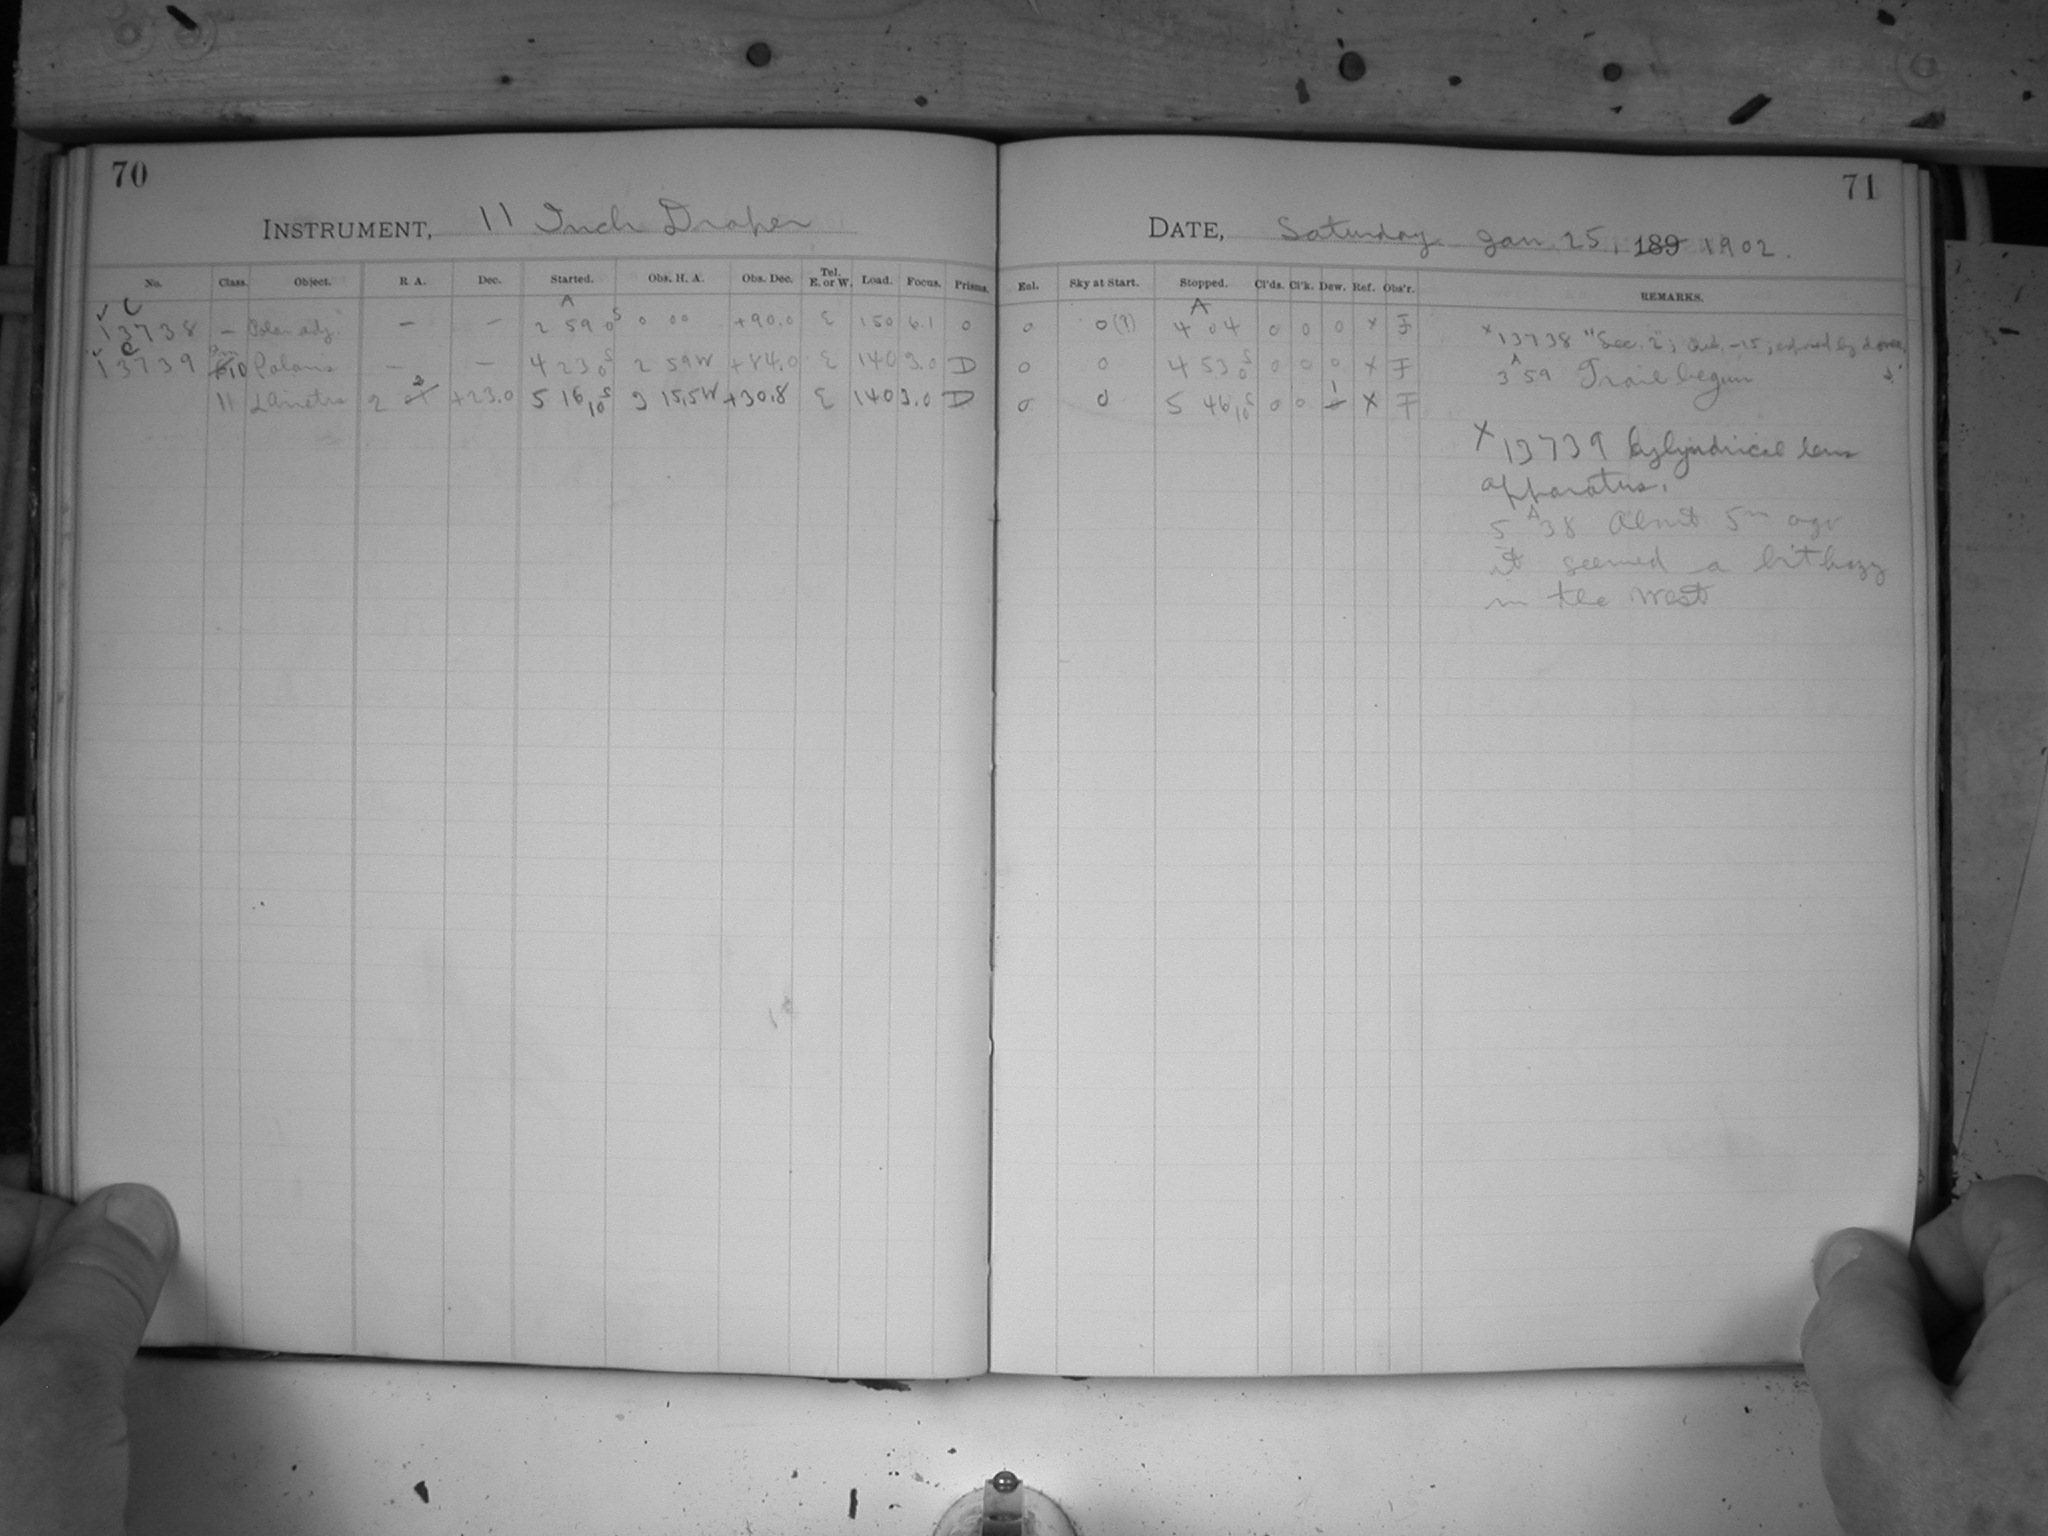 70
INSTRUMENT, 11 Inch Draper
No. Class. Object. R A. Dec. Started. Obs. H. A. Obs. Dec. Tel. E. or W. Load. Focus. Prisms.
A
13738 — Polar adj. — — 2 59 0s 0 00 +90.0 E 150 6.1 0
13739 10 Polaris — — 4 23 0s 2 59W +84.0 E 140 3.0 D
11 2 2 +23.0 5 16 10s 3 15.5W +30.8 E 140 3.0 D
71
DATE, Saturday Jan. 25, 189 1902.
Eal. Sky at Start. Stopped. Cl'ds. Cl'k. Dew. Ref. Obs'r. REMARKS.
A
0 0(?) 4 04 0 0 0 x F
0 0 4 53 0s 0 0 0 x F
0 0 5 46 10s 0 0 1 x F
x 13738 "Sec. 2";
3 A 59 Trail begun
x 13739 Cylyindrical lens
apparatus.
5 A 38 About 5m ago
it seemed a bit hazy
in the West